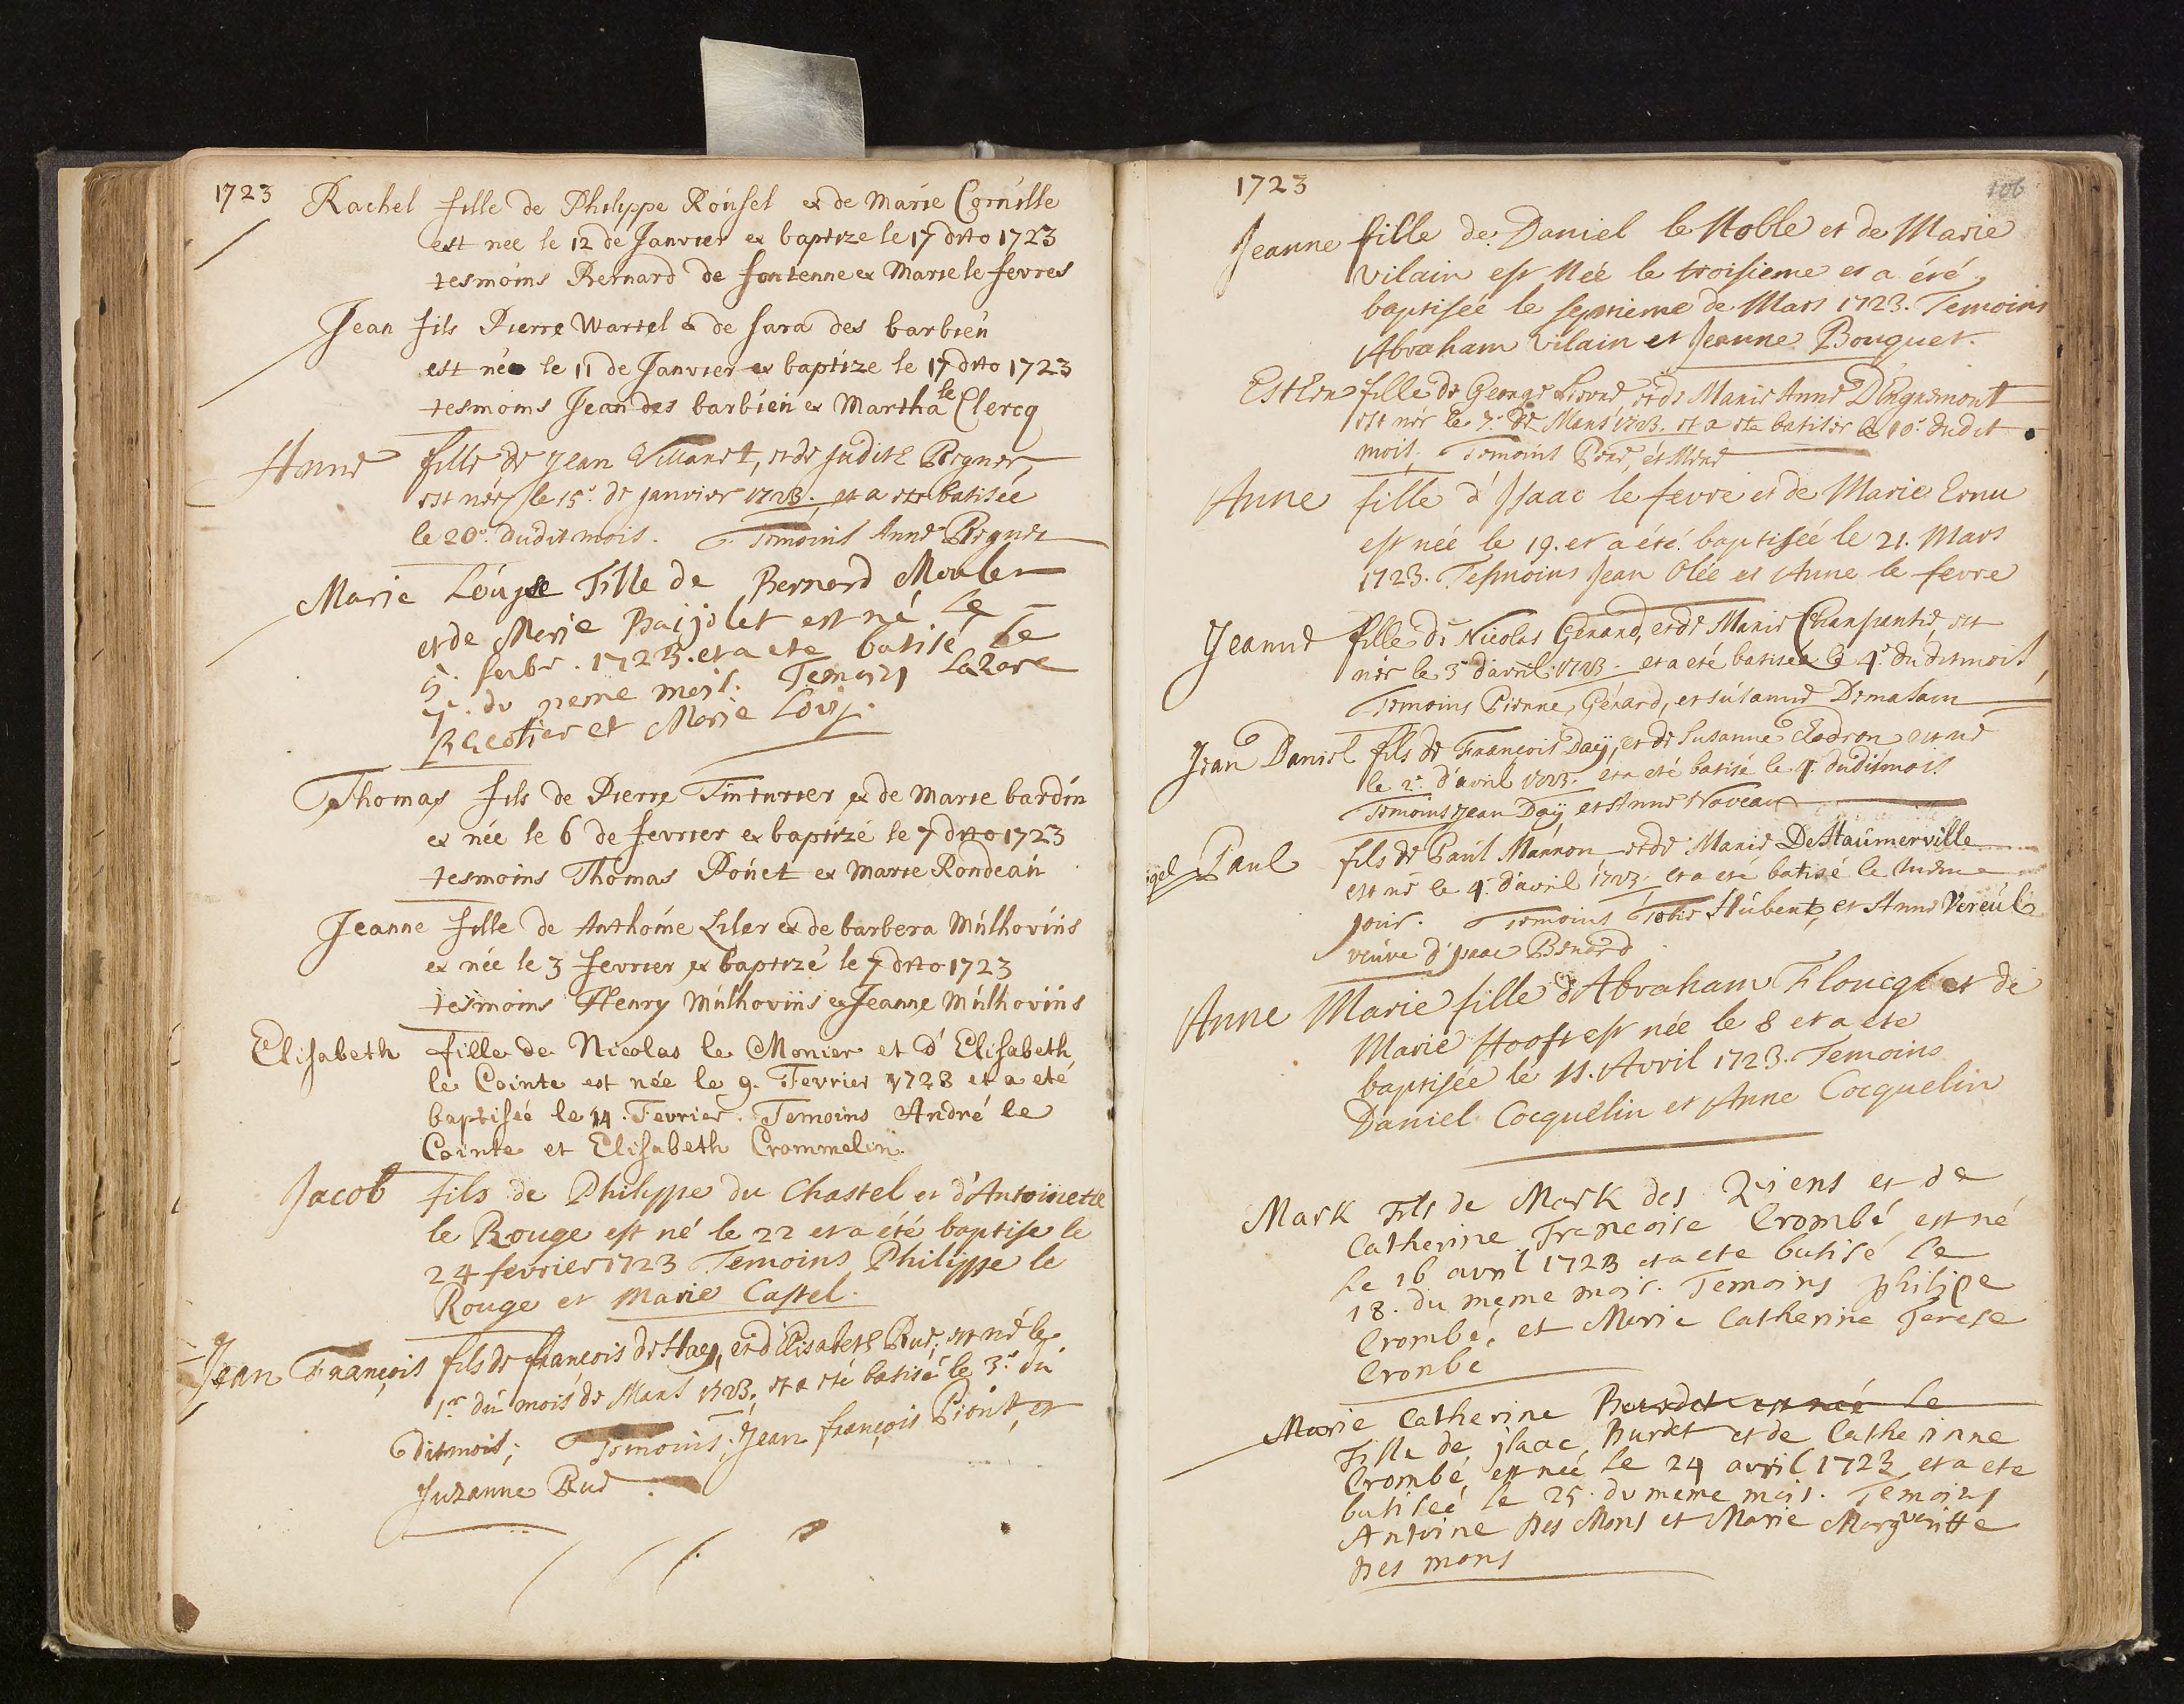 1723 Rachel fille de Philippe Rousel et de Marie Cornille
est née le 12 de Janvier et baptize le 17 dito 1723
tesmoins Bernard de fontenne et Marie le fevres
Jean fils Pierre Wartel et de sara des barbieu
est née le 11 de Janvier et baptize le 17 dito 1723
tesmoins Jean des barbieu et Martha le Clercq
Anne fille de Jean Villaret, et de Judith Regner,
est née le 15e. de Janvier 1723. et a ete batisée
le 20e. dudit mois. Temoins Anne Regner
Marie Louyse Fille de Bernard
et de Marie est né le
5. febr. 1723. et a ete batisé le
7. du meme mois. Temoin Lazare
et Marie Louis.
Thomas fils de Pierre Tinturier et de Marie bardin
et née le 6 de fevrier et baptizé le 7 dito 1723
tesmoins Thomas Rouet et Marie Rondeau
Jeanne fille de Anthoine Liler et de barbera Mulhovius
et née le 3 fevrier et baptizé le 7 dito 1723
tesmoins Henry Mulhovius et Jeanne Mulhovius
Elisabeth fille de Nicolas le Monier et d'Elisabeth
le Cointe est née le 9. Fevrier 1723 et a eté
baptiseé le 14. Fevrier. Temoins André le
Cointe et Elisabeth Crommelin.
Jacob fils de Philippe du Chastel et d'Antoinette
le Rouge est né le 22 et a été baptise le
24 fevrier 1723 Temoins Philippe le
Rouge et Marie Castel.
Jean François fils de françois de Hay, et d'Elisabeth Rud, est né le
1er du mois de Mars 1723, et a eté batisé le 3e. du
dit mois; Temoins, Jean françois et
Suzanne Rud
1723
106
Jeanne fille de Daniel le Noble et de Marie
Vilain est Née le troisieme et a été
baptisée le septieme de Mars 1723. Temoins
Abraham Vilain et Jeanne Bouquet.
Esther fille de George et de Marie Anne D'Engremont
est née le 7. de Mars 1723. et a ete batisée le 10e. dudit
mois. Temoins Pere, et Mere
Anne fille d'Isaac le fevre et de Marie Ernu
est née le 19. et a été baptisée le 21. Mars
1723. Tesmoins Jean Olée et Anne le fevre
Jeanne fille de Nicolas Gerard, et de Marie Charpantié, est
née le 3e d'avril 1723. et a eté batisée le 4e. du dit mois,
Temoins Pierre Gérard, et Susanne
Jean Daniel fils de François Daÿ, et de Susanne est né
le 2e. d'avril 1723. et a eté batisé le 4. dudit mois
Temoins Jean Daÿ et Anne Naveau
Paul fils de Paul Marron et de Marie De Haumerville
est né le 4e. d'avril 1723. et a eté batisé le meme
jour. Temoins Hubert, et Anne Vereul
veuve d'Isaac Benard
Anne Marie fille d'Abraham Floucqk et de
Marie Hooft est née le 8 et a ete
baptisée le 11. Avril 1723. Temoins
Daniel Cocquelin et Anne Cocquelin
Mark Fils de Mark des et de
Catherine Francoise Crombé est né
Le 16 avril 1723 et a ete batisé le
18. du meme mois. Temoins philipe
Crombé, et Marie Catherine Terese
Crombé
Marie Catherine Burdet est née le
Fille de jsaac Burdet et de Catherinne
Crombé, est née Le 24 avril 1723 et a ete
batiseé le 25. du meme mois. Temoins
Antoine des Mons et Marie Margueritte
des mons